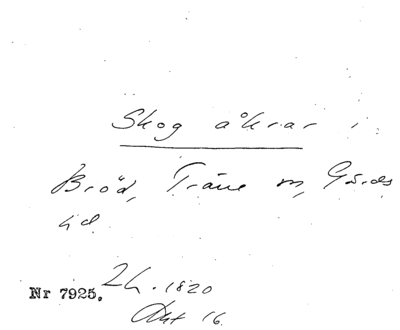 Skog åkrar i
Bröd, Träne m, Gärds
hd.
Nr 7925. 2h. 1820
Akt 16.